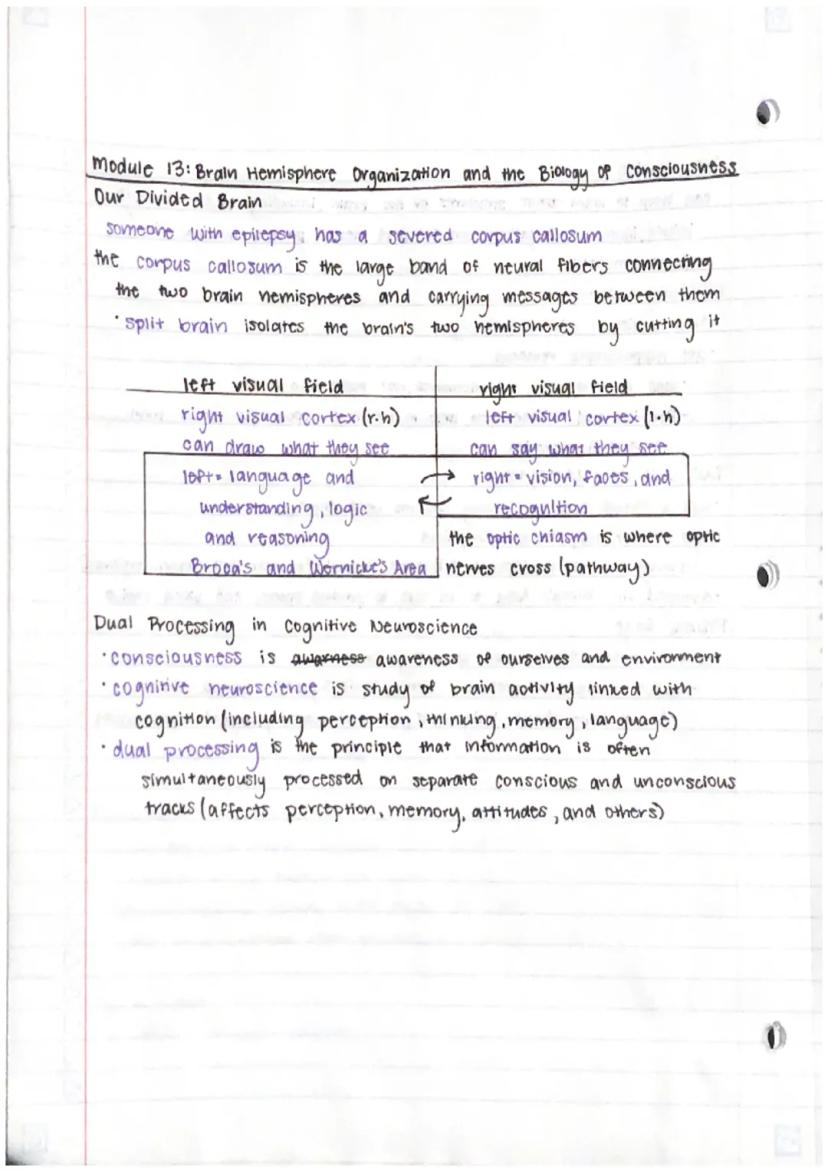 Module 13: Brain Hemisphere Organization and the Biology of Consciousness
Our Divided Brain
someone with epilepsy has a severed corpus callosum
the corpus callosum is the large band of neural fibers connecting
the two brain hemispheres and carrying messages between them
• split brain isolates the brain's two hemispheres by cutting it
left visual field
right visual cortex (r.h)
can draw what they see
right visual field
left visual cortex (l.h)
can say what they see
left = language and
understanding, logic
and reasoning
Broca's and Wernicke's Area
→ right = vision, faces, and
← recognition
the optic chiasm is where optic
nerves cross (pathway)
Dual Processing in Cognitive Neuroscience
• consciousness is awarness awareness of ourselves and environment
• cognitive neuroscience is study of brain activity linked with
cognition (including perception, thinking, memory, language)
• dual processing is the principle that information is often
simultaneously processed on separate conscious and unconscious
tracks (affects perception, memory, attitudes, and others)